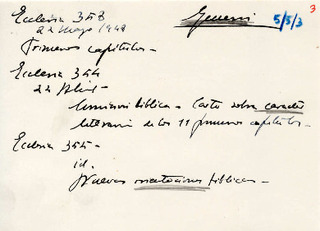 3
Genesis 5/5/3
Ecclesia 358
22 Mayo 1948
Primeros capítulos -
Ecclesia 344
Comisión bíblica - Carta sobre caracter
literario de los 11 primeros capítulos -
Ecclesia 355 -
id.
Nuevas orientaciones bíblicas -